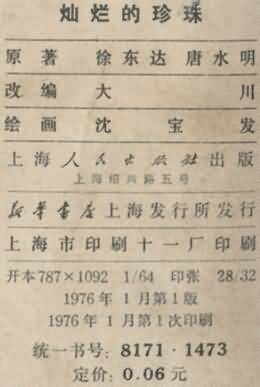 灿烂的珍珠
原著 徐东达 唐水明
改编 大川
绘画 沈宝发
上海人民出版社出版
上海绍兴路五号
新华书店上海发行所发行
上海市印刷十一厂印刷
开本787×1092 1/64 印张 28/32
1976年 1月第1版
1976年 1月第1次印刷
统一书号: 8171·1473
定价: 0.06元